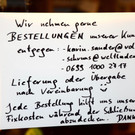 Wir nehmen gerne
BESTELLUNGEN unserer Kun
entgegen: -karin.sander@
- schrums@weltladen
- 0699 1000 27 19
Lieferung oder Übergabe
nach Vereinbarung
Jede Bestellung hilft uns unsere
Fixkosten während der Schließun
abzudecken. DANK